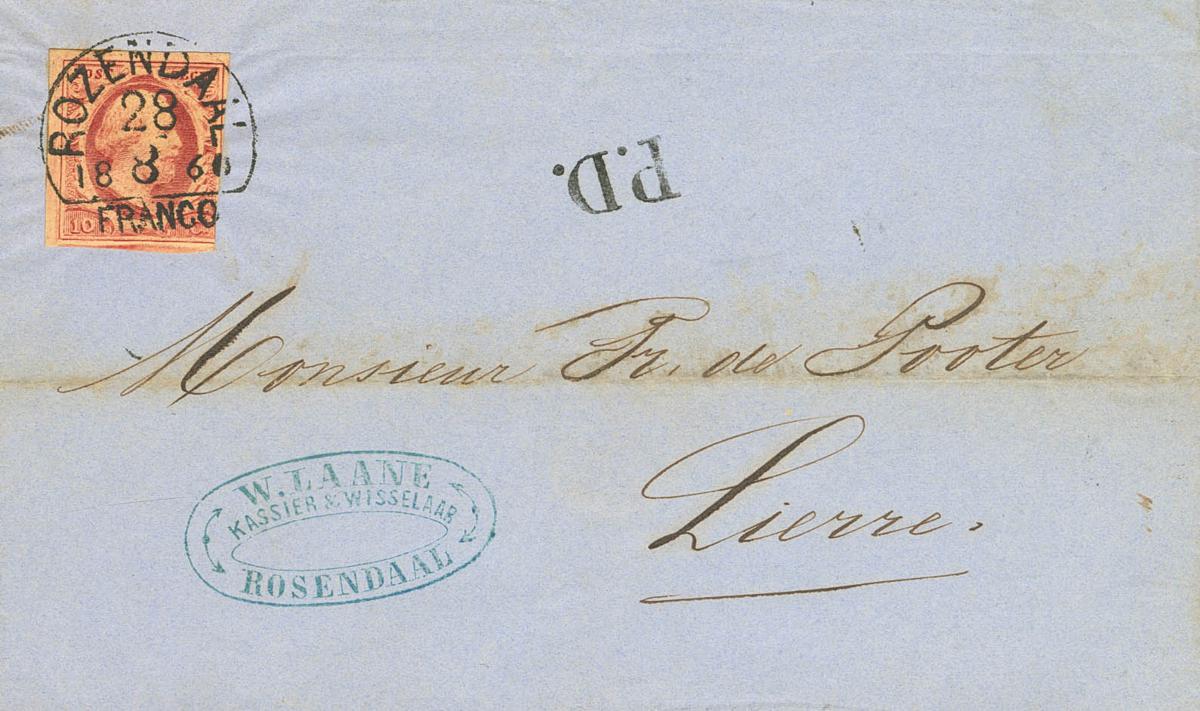 ROZENDAAL
28
18 8 60
FRANCO
10
P.D.
Monsieur Fr. de Pooter
Lierre.
W. LAANE
KASSIER & WISSELAAR
ROSENDAAL